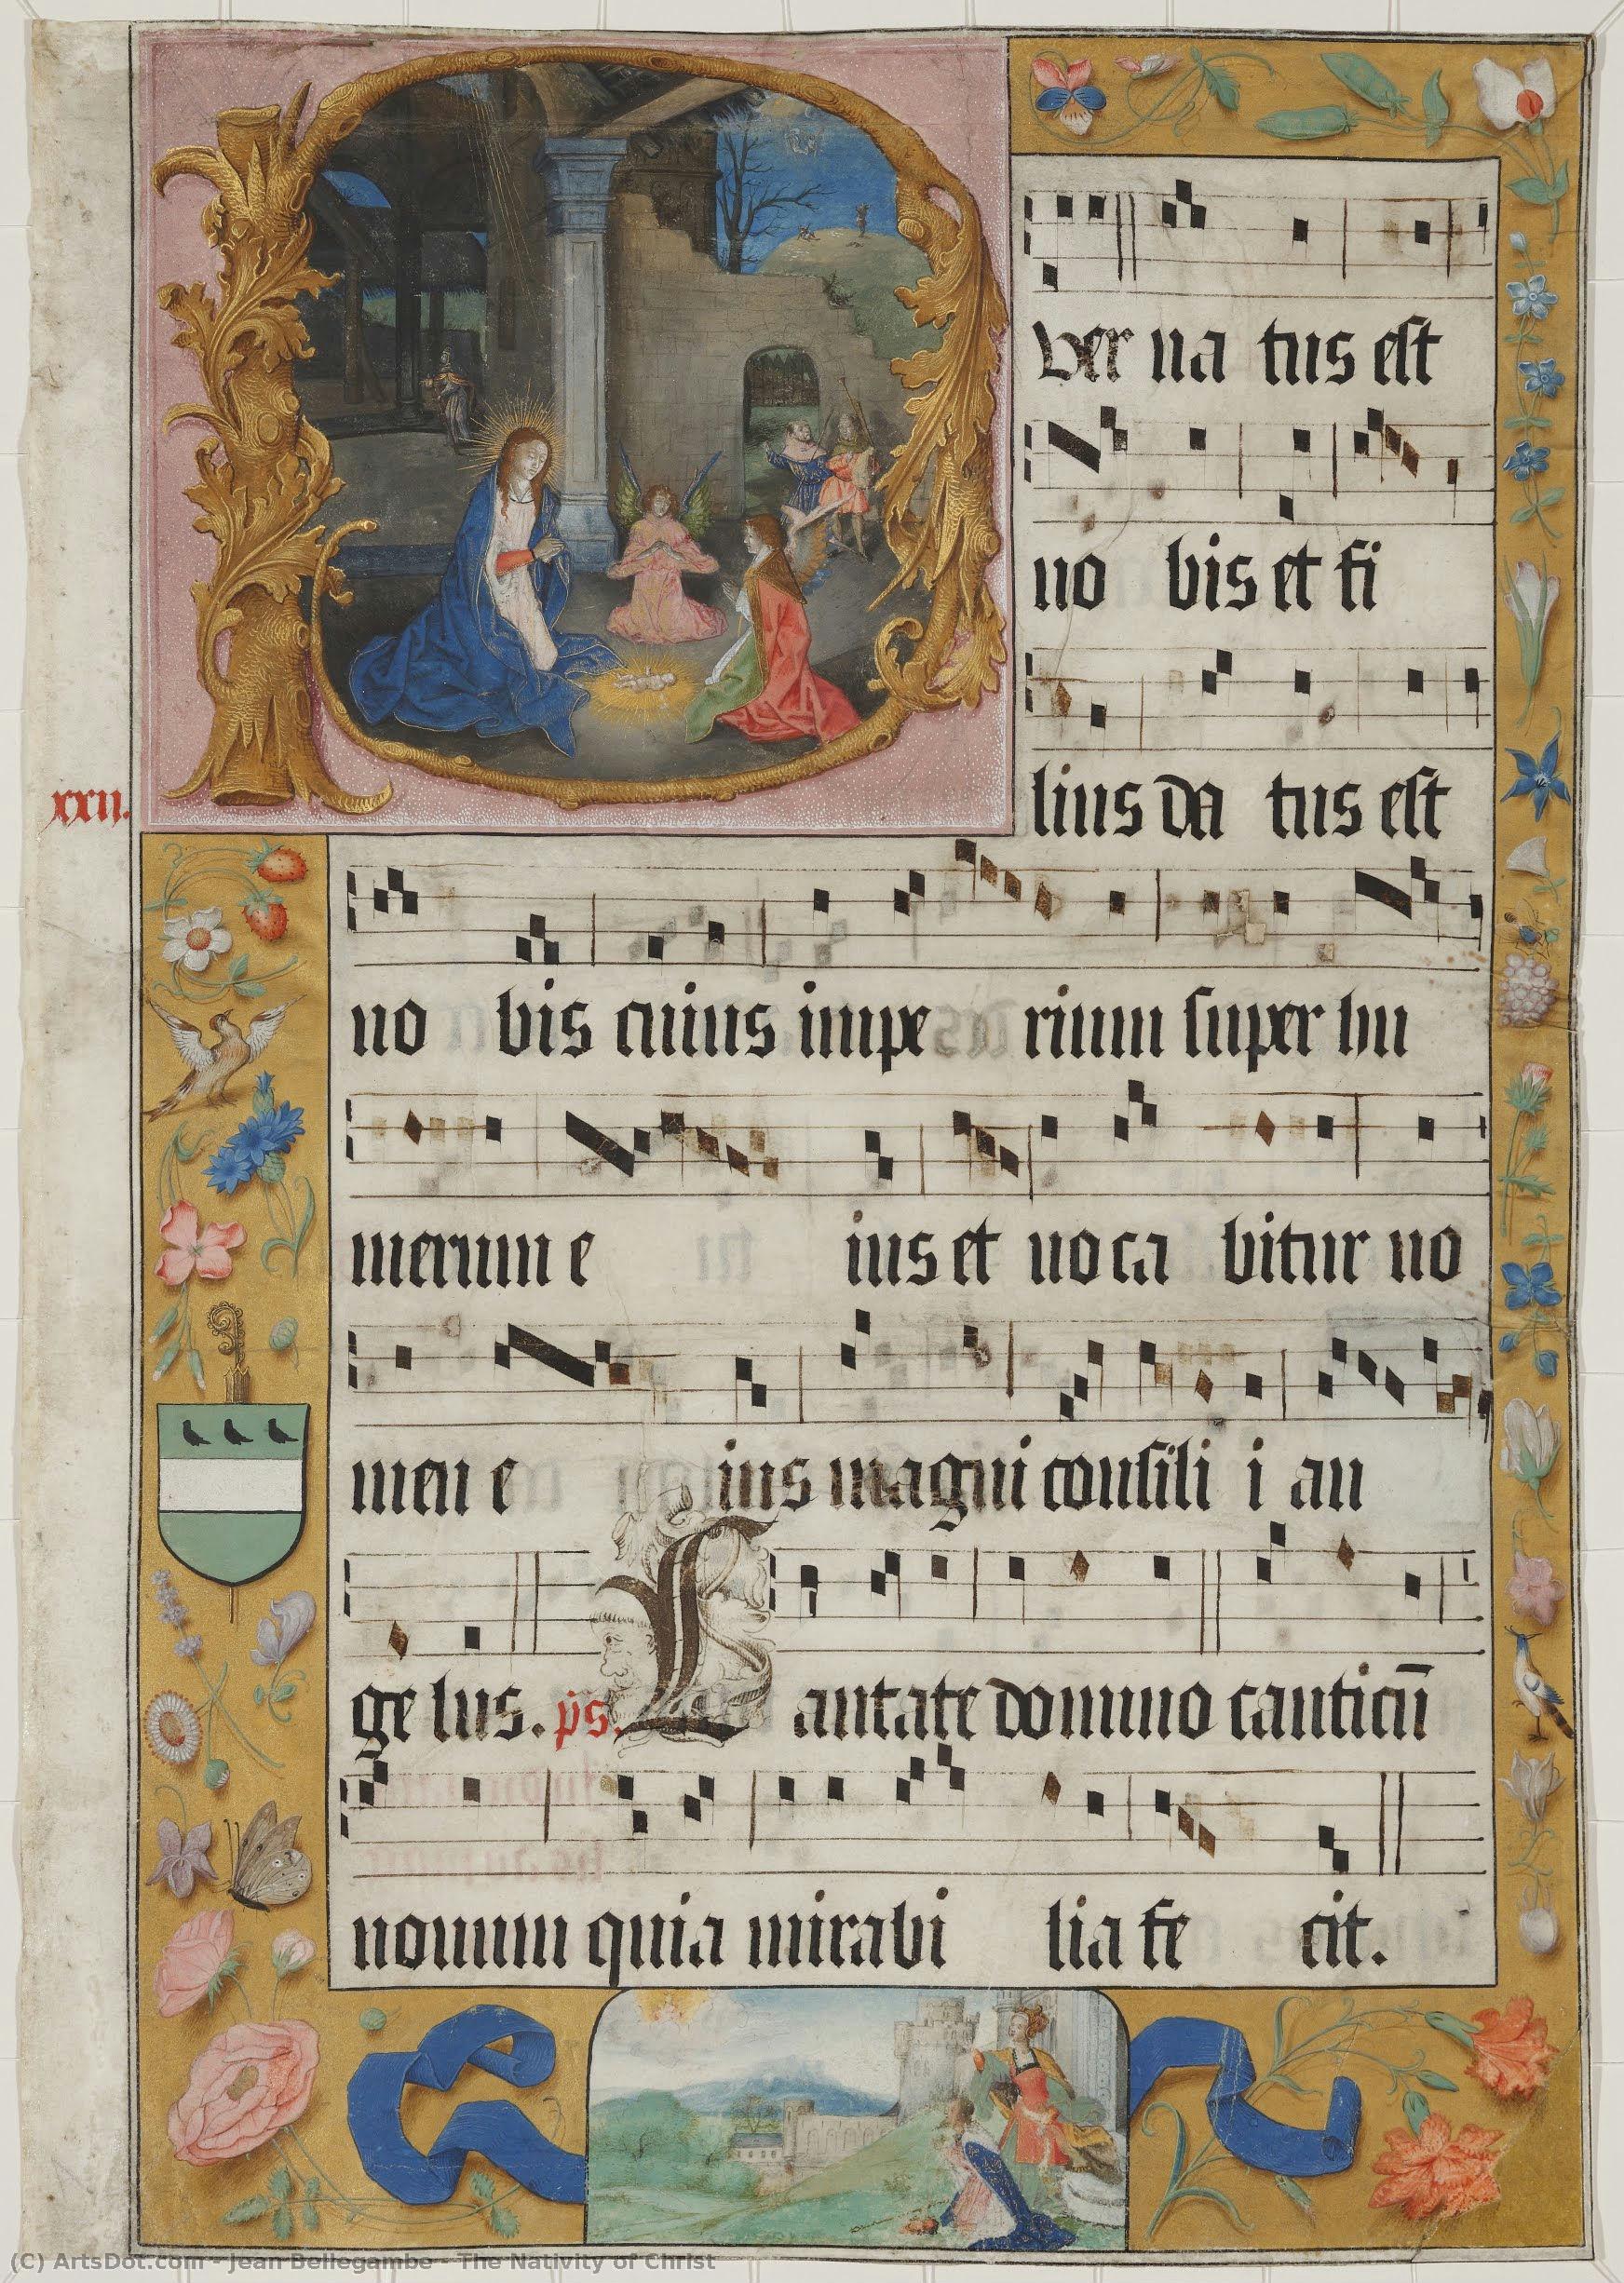 P
uer na tus est
no bis et fi
lius da tus est
xxii.
no bis cuius impe rium super hu
merum e ius et uoca bitur no
men e ius magni consili i an
ge lus. ps. Cantate domino canticū
nouum quia mirabi lia fe cit.
(C) ArtsDot.com - Jean Bellegambe - The Nativity of Christ